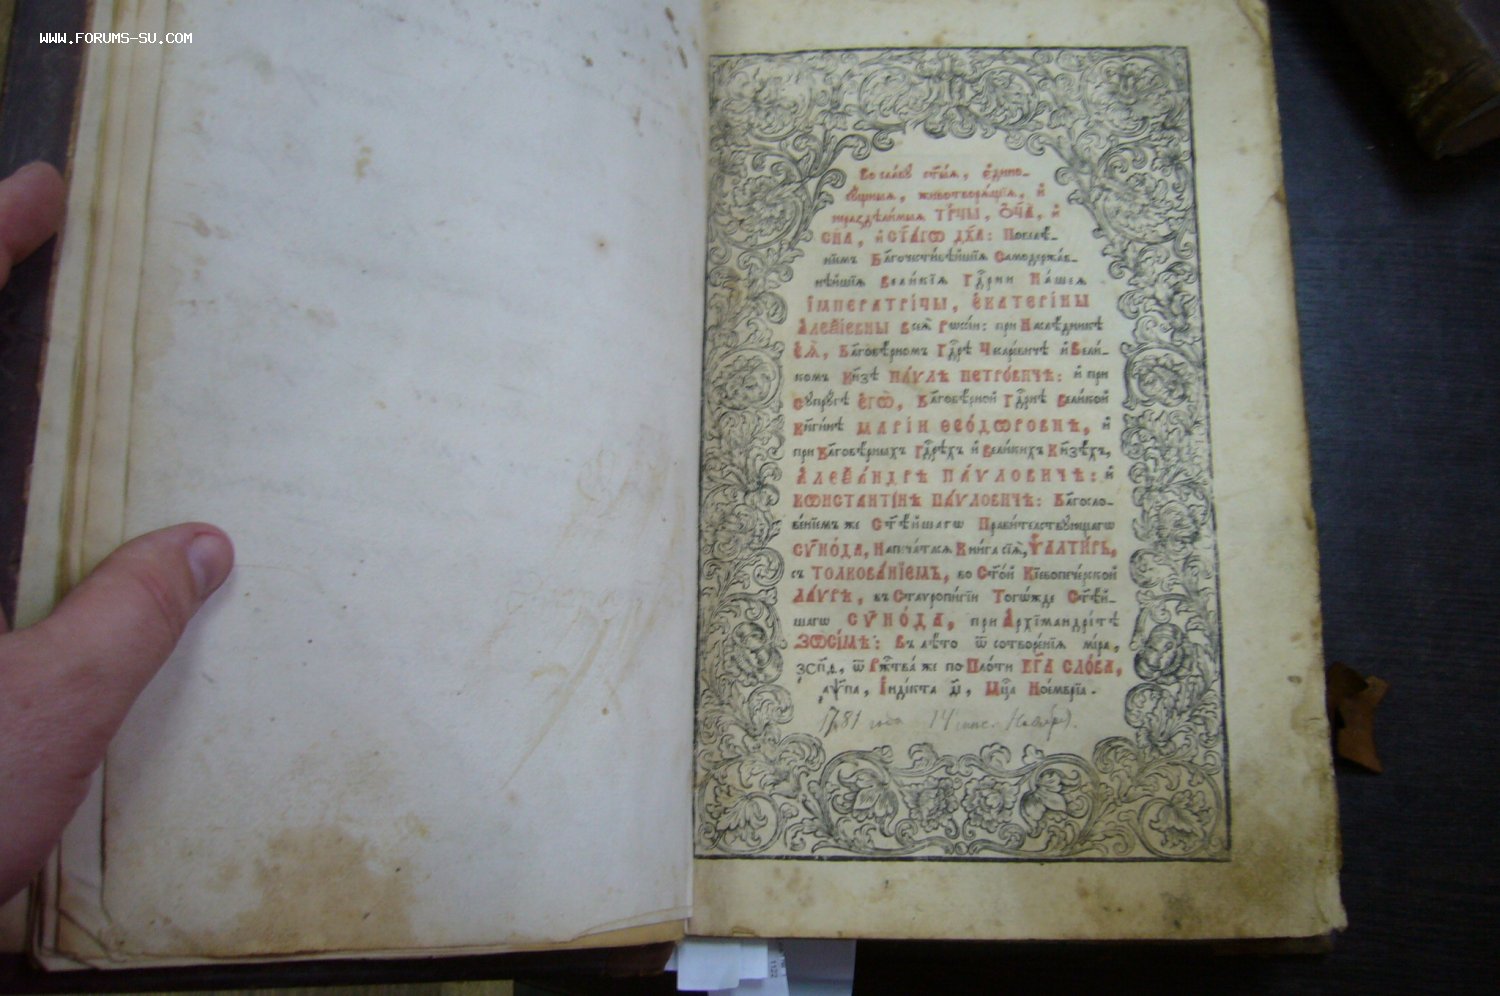 WWW.FORUMS-SU.COM
Во сла́вꙋ ст҃ы́ѧ, є҆дино-
сꙋ́щныѧ, животворѧ́щїѧ, и҆
нераздѣли́мыѧ ТРⷪ҇ЦЫ, Ѻ҆Ц҃А̀, и҆
СН҃А, и҆ СТ҃А́ГѠ ДХ҃А: Повелѣ́-
нїемъ Бл҃гочести́вѣйшїѧ Самодержа́в-
нѣйшїѧ Вели́кїѧ Гдⷭ҇рни На́шеѧ
І҆МПЕРАТРІ́ЦЫ, Є҆КАТЕРІ́НЫ
АЛЕѮІ́ЕВНЫ всеѧ̀ Рѡссі́и: при Наслѣ́дникѣ
Є҆Ѧ̀, Бл҃говѣ́рномъ Гдⷭ҇рѣ Цесаре́вичѣ и҆ Вели́-
комъ Кн҃зѣ ПА́ѴЛѢ ПЕТРО́ВИЧѢ: и҆ при
Сꙋпрꙋ́гѣ Є҆ГѠ̀, Бл҃говѣ́рной Гдⷭ҇рнѣ Вели́кой
Кн҃ги́нѣ МАРІ́И ѲЕО́ДѠРОВНѢ, и҆
при Бл҃говѣ́рныхъ Гдⷭ҇рѣхъ и҆ Вели́кихъ Кн҃зѣ́хъ,
АЛЕѮА́НДРѢ ПА́ѴЛОВИЧѢ: и҆
КѠНСТАНТІ́НѢ ПА́ѴЛОВИЧѢ: Бл҃госло-
ве́нїемъ же Ст҃ѣ́йшагѡ Прави́телствꙋющагѡ
СѴНО́ДА, Напеча́тасѧ Кни́га сїѧ̀, ѰАЛТИ́РЬ,
съ ТОЛКОВА́НЇЕМЪ, во Ст҃о́й Кїевопече́рской
ЛА́ѴРѢ, въ Стаѵропи́гїи Тогѡ́жде Ст҃ѣ́й-
шагѡ СѴНО́ДА, при Архїмандрі́тѣ
ЗѠСІ́МѢ: Въ лѣ́то ѿ сотворе́нїѧ мі́ра,
҂зсп҃д, ѿ Ржⷭ҇тва́ же по Пло́ти БГ҃А СЛО́ВА,
҂аѱпа, І҆нді́кта д҃і, Мцⷭ҇а Ное́мврїа.
1781 года